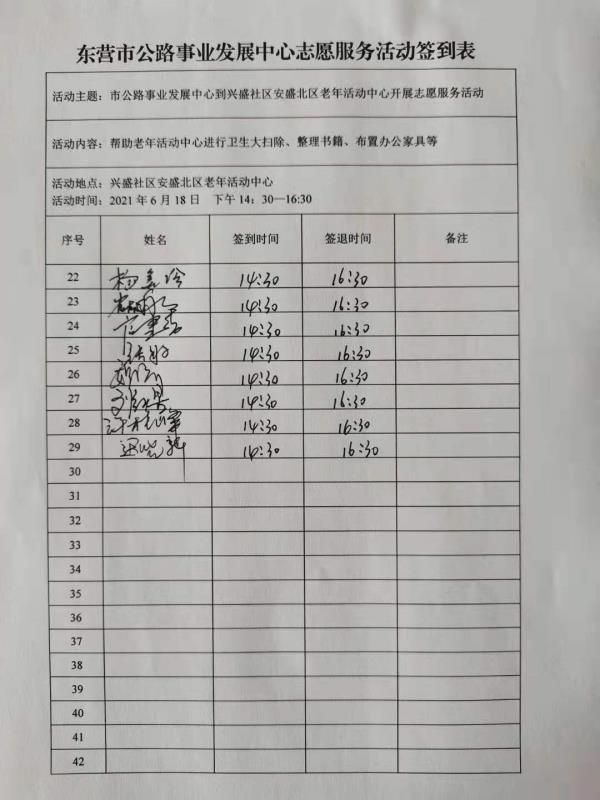 东营市公路事业发展中心志愿服务活动签到表
活动主题：市公路事业发展中心到兴盛社区安盛北区老年活动中心开展志愿服务活动
活动内容：帮助老年活动中心进行卫生大扫除、整理书籍、布置办公家具等
活动地点：兴盛社区安盛北区老年活动中心
活动时间：2021 年 6 月 18 日 下午 14：30—16:30
序号 姓名 签到时间 签退时间 备注
22 14:30 16:30
23 14:30 16:30
24 14:30 16:30
25 14:30 16:30
26 14:30 16:30
27 14:30 16:30
28 14:30 16:30
29 14:30 16:30
30
31
32
33
34
35
36
37
38
39
40
41
42